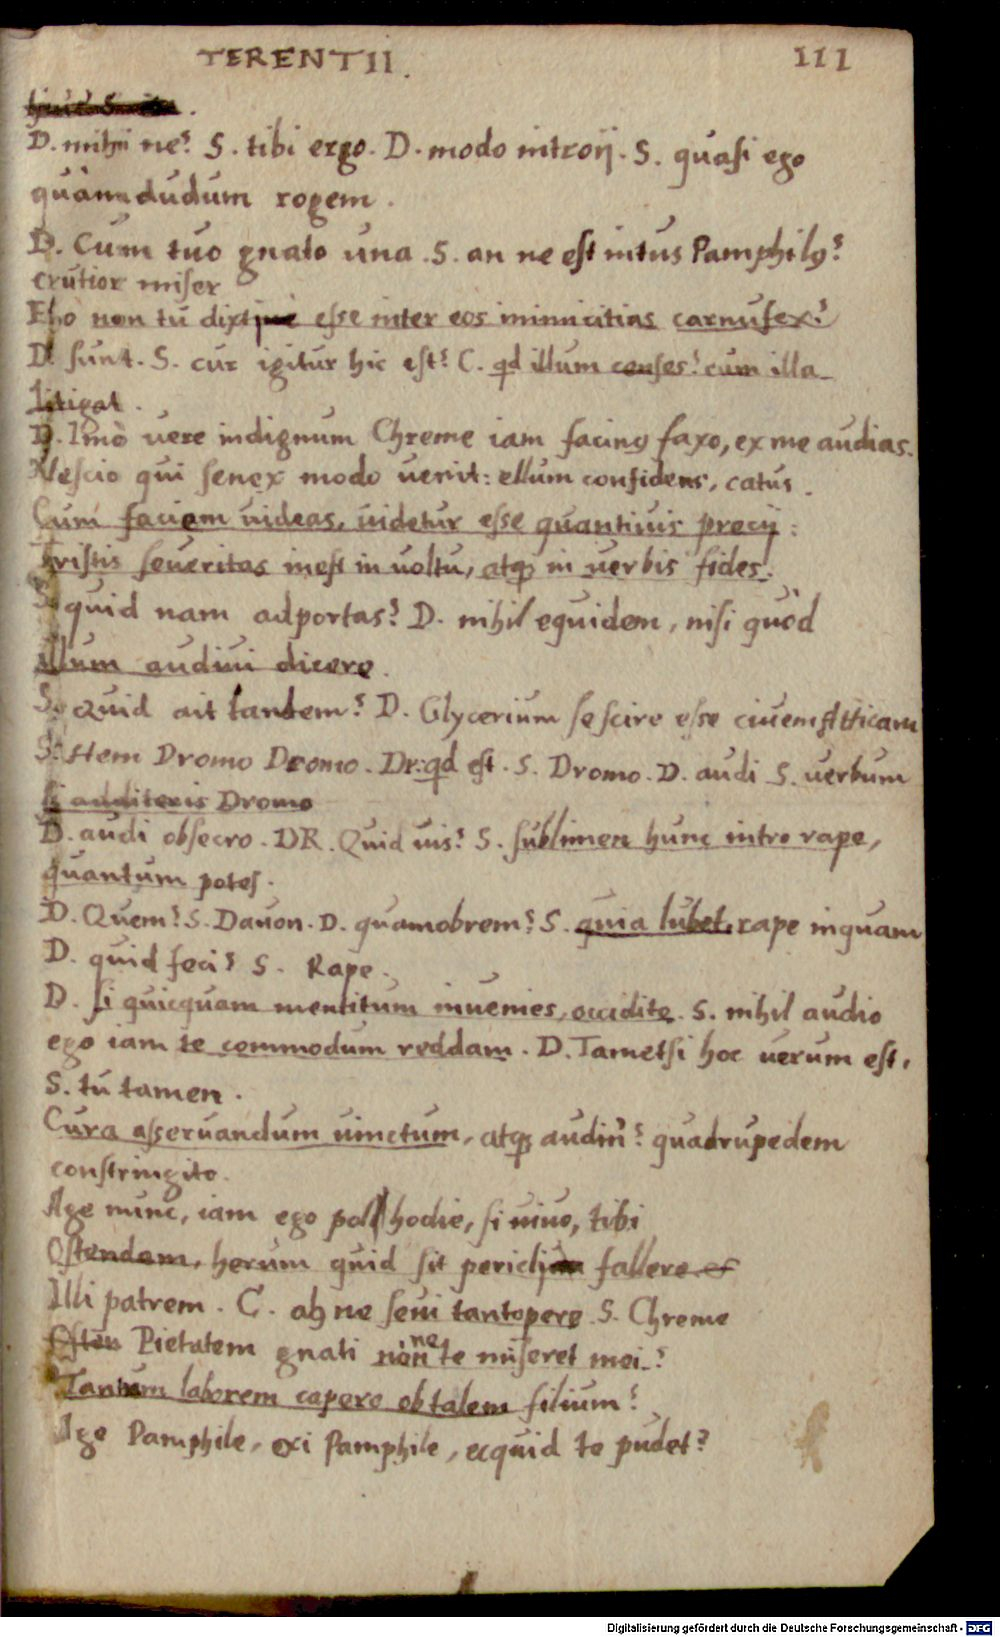 TERENTII. 111
D. mihi ne? S. tibi ergo. D. modo introij. S. quasi ego
quam dudum rogem.
D. Cum tuo gnato una. S. an ne est intus Pamphilꝰ?
crutior miser
Eho non tu dixti esse inter eos inimicitias carnufex?
D. sunt. S. cur igitur hic est? C. qd illum censes? cum illa
litigat.
D. Imò vere indignum Chreme iam facinꝰ faxo, ex me audias.
Nescio qui senex modo uenit: ellum confidens, catus.
Cum faciem uideas, uidetur esse quantiuis precij:
Tristis seueritas inest in uoltu, atqꝫ in uerbis fides.
S. quid nam adportas? D. nihil equidem, nisi quòd
illum audiui dicere.
S. Quid ait tandem? D. Glycerium se scire esse ciuem Atticam
S. Hem Dromo Dromo. Dr: qd est. S. Dromo. D. audi S. uerbum
si addideris Dromo
D. audi obsecro. DR. Quid uis? S. sublimen hunc intro rape,
quantum potes.
D. Quem? S. Dauon. D. quamobrem? S. quia lubet. rape inquam
D. quid feci? S. Rape.
D. si quicquam mentitum inuenies, occidito. S. nihil audio
ego iam te commodum reddam. D. Tametsi hoc uerum est,
S. tu tamen.
Cura asseruandum uinctum, atqꝫ audin? quadrupedem
constringito.
Age nunc, iam ego pol hodie, si uiuo, tibi
Ostendam, herum quid sit pericli fallere et
Illi patrem. C. ah ne seui tantopere S. Chreme
Pietatem gnati nonne te miseret mei?
Tantum laborem capere ob talem filium?
Age Pamphile, exi Pamphile, ecquid te pudet?
Digitalisierung gefördert durch die Deutsche Forschungsgemeinschaft - DFG